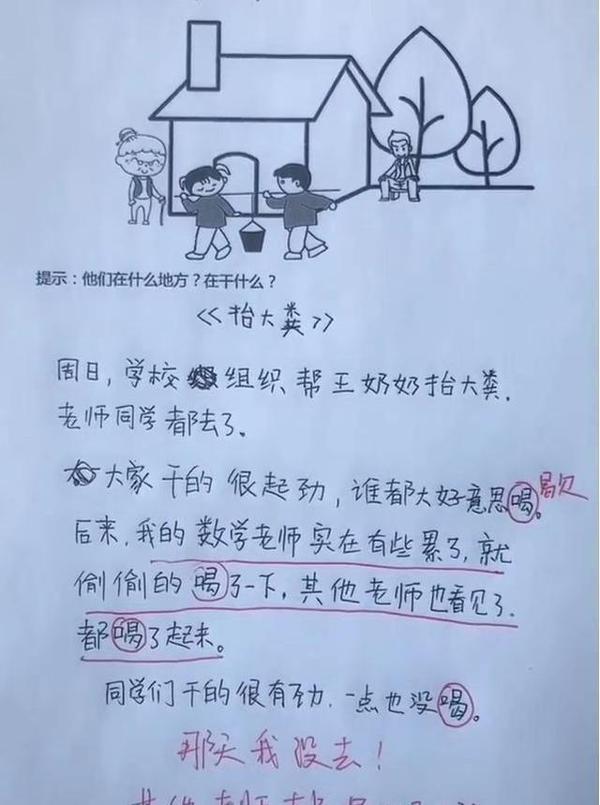 提示：他们在什么地方？在干什么？
<<抬大粪>>
周日，学校组织帮王奶奶抬大粪.
老师同学都去了。
大家干的很起劲，谁都大好意思喝。歇
后来，我的数学老师实在有些累了，就
偷偷的喝了一下，其他老师也看见了.
都喝了起来。
同学们干的很有劲.一点也没喝。
那天我没去！